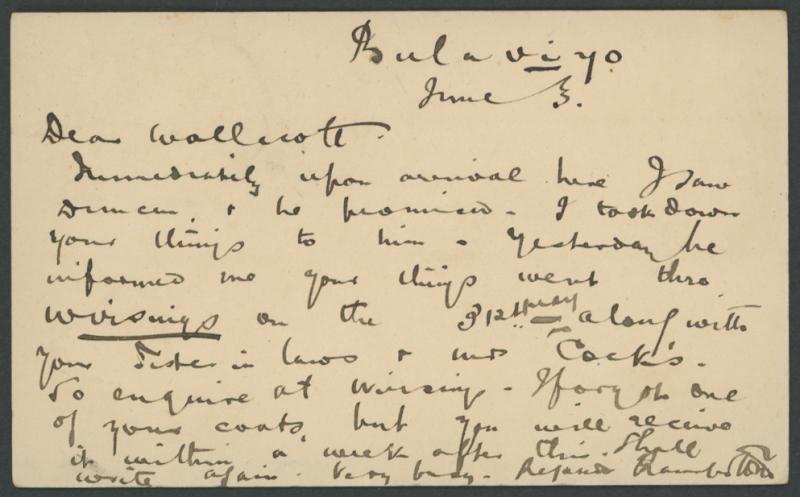 Bulawiyo
June 3.
Dear Wallscott.
Immediately upon arrival here I saw
Duncan, & he promised. I took down
your things to him. Yesterday he
informed me your things went thro
Wirsings on the 31st May along with
your Sister in laws & Mrs Cock's.
So enquire at Wirsing. I forgot one
of your coats, but you will receive
it within a week after this. Shall
write again. Very busy. Regards